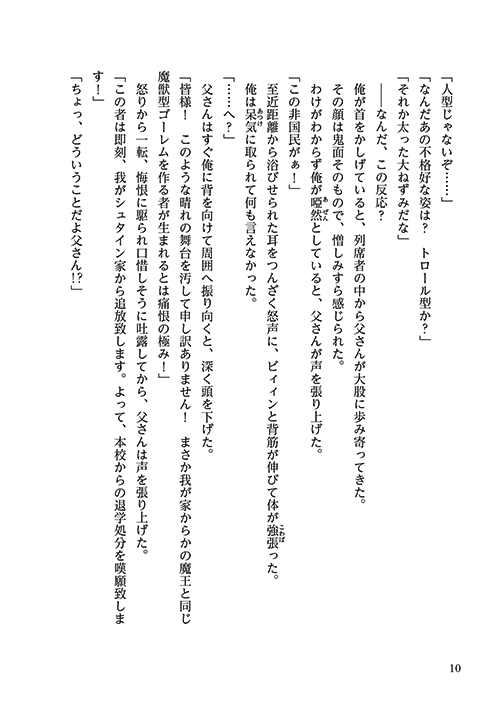 「人型じゃないぞ……」
「なんだあの不格好な姿は？　トロール型か？」
「それか太った大ねずみだな」
――なんだ、この反応？
俺が首をかしげていると、列席者の中から父さんが大股に歩み寄ってきた。
その顔は鬼面そのもので、憎しみすら感じられた。
わけがわからず俺が唖然としていると、父さんが声を張り上げた。
「この非国民がぁ！」
至近距離から浴びせられた耳をつんざく怒声に、ビィィンと背筋が伸びて体が強張った。
俺は呆気に取られて何も言えなかった。
「……へ？」
父さんはすぐ俺に背を向けて周囲へ振り向くと、深く頭を下げた。
「皆様！　このような晴れの舞台を汚して申し訳ありません！　まさか我が家からかの魔王と同じ
魔獣型ゴーレムを作る者が生まれるとは痛恨の極み！」
怒りから一転、悔恨に駆られ口惜しそうに吐露してから、父さんは声を張り上げた。
「この者は即刻、我がシュタイン家から追放致します。よって、本校からの退学処分を嘆願致しま
す！」
「ちょっ、どういうことだよ父さん!?」
10